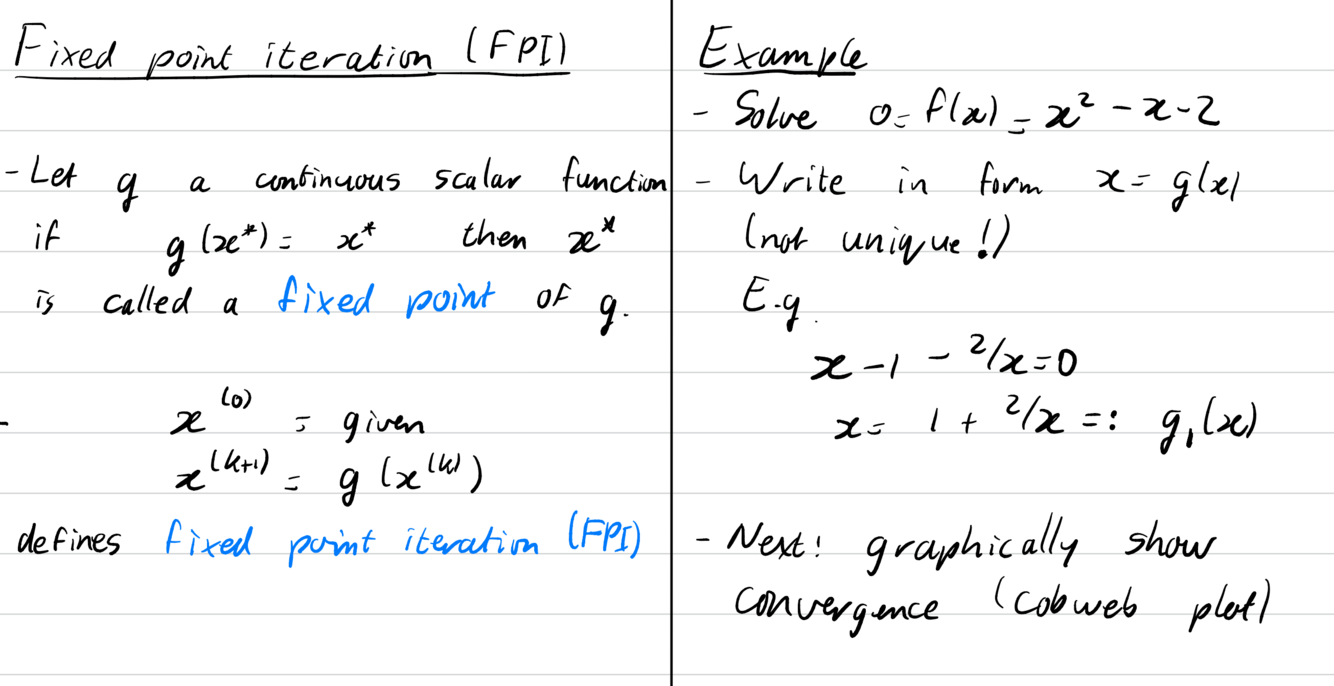 Fixed point iteration (FPI)
- Let g a continuous scalar function
if g(x*) = x* then x*
is called a fixed point of g.
- x^(0) = given
x^(k+1) = g(x^(k))
defines fixed point iteration (FPI)
Example
- Solve 0 = f(x) = x² - x - 2
- Write in form x = g(x)
(not unique!)
E.g.
x - 1 - 2/x = 0
x = 1 + 2/x =: g₁(x)
- Next: graphically show
convergence (cobweb plot)